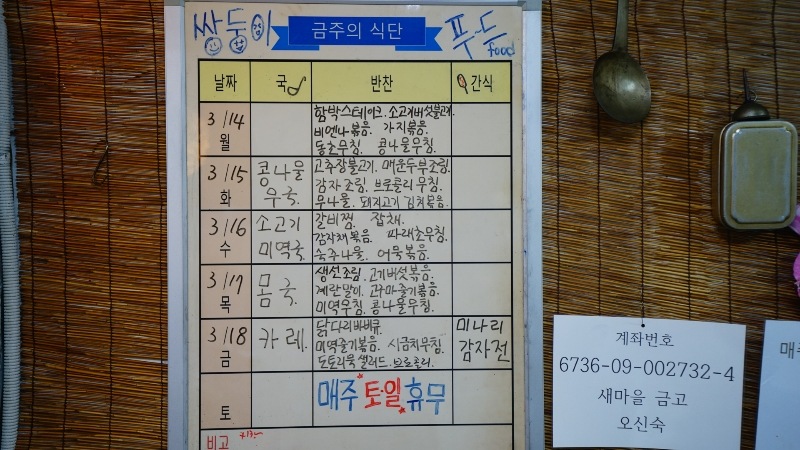 쌍둥이
금주의 식단
푸드
food
날짜 국 반찬 간식
3/14 월
함박스테이크. 소고기버섯불고기.
비엔나볶음. 가지볶음.
동초무침. 콩나물무침.
3/15 화
콩나물
무국.
고추장불고기. 매운두부조림.
감자조림. 브로콜리무침.
무나물. 돼지고기 김치볶음.
3/16 수
소고기
미역국.
갈비찜. 잡채.
감자채볶음. 파래초무침.
숙주나물. 어묵볶음.
3/17 목
몸국.
생선조림. 고기버섯볶음.
계란말이. 고구마줄기볶음.
미역무침. 콩나물무침.
3/18 금
카레.
닭다리바비큐.
미역줄기볶음. 시금치무침.
도토리묵 샐러드. 브로콜리.
미나리
감자전
토
매주 토·일 휴무
비고
계좌번호
6736-09-002732-4
새마을 금고
오신숙
매주